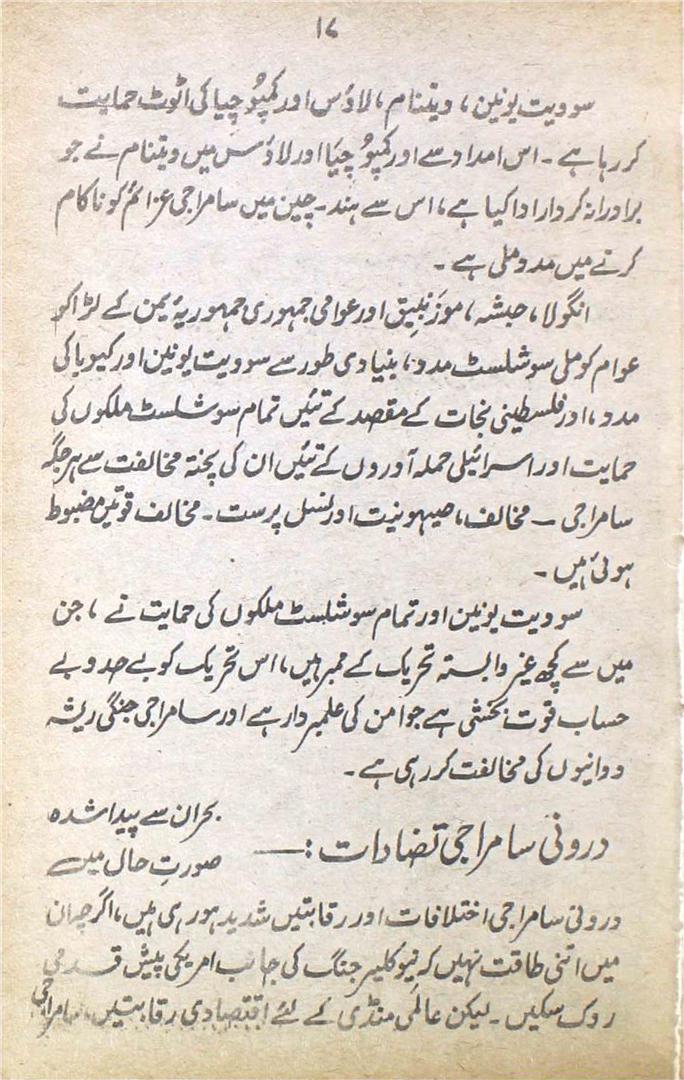 ۱۷
سوویت یونین، ویتنام، لاؤس اور کمپُوچیا کی اٹوٹ حمایت
کر رہا ہے۔ اس امداد سے اور کمپُوچیا اور لاؤس میں ویتنام نے جو
برادرانہ کردار ادا کیا ہے، اس سے ہند۔ چین میں سامراجی عزائم کو ناکام
کرنے میں مدد ملی ہے۔
انگولا، حبشہ، موزنبیق اور عوامی جمہوری جمہوریۂ یمن کے لڑاکو
عوام کو ملی سوشلسٹ مدد، بنیادی طور سے سوویت یونین اور کیوبا کی
مدد، اور فلسطینی نجات کے مقصد کے تئیں تمام سوشلسٹ ملکوں کی
حمایت اور اسرائیلی حملہ آوروں کے تئیں ان کی پختہ مخالفت سے ہر جگہ
سامراجی — مخالف، صیہونیت اور نسل پرست۔ مخالف قوتیں مضبوط
ہوئی ہیں۔
سوویت یونین اور تمام سوشلسٹ ملکوں کی حمایت نے، جن
میں سے کچھ غیر وابستہ تحریک کے ممبر ہیں، اس تحریک کو بے حد و بے
حساب قوت بخشی ہے جو امن کی علمبردار ہے اور سامراجی جنگی ریشہ
دوانیوں کی مخالفت کر رہی ہے۔
درونی سامراجی تضادات :— بحران سے پیدا شدہ
صورتِ حال میں
درونی سامراجی اختلافات اور رقابتیں شدید ہو رہی ہیں، اگرچہ ان
میں اتنی طاقت نہیں کہ نیوکلیر جنگ کی جانب امریکی پیش قدمی
روک سکیں۔ لیکن عالمی منڈی کے لئے اقتصادی رقابتیں، سامراجی